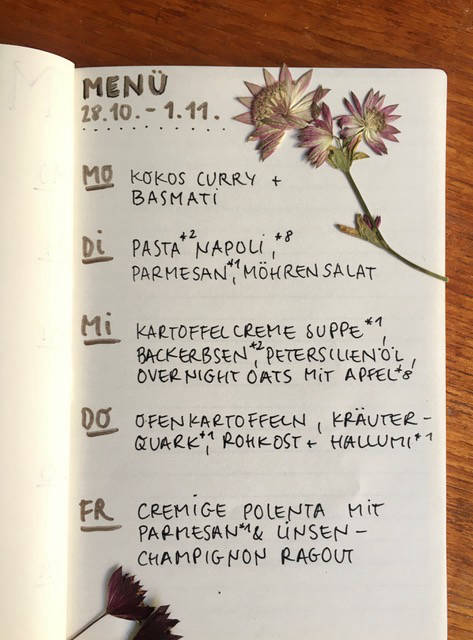 MENÜ
28.10. - 1.11.
MO KOKOS CURRY +
BASMATI
DI PASTA*2 NAPOLI,*8
PARMESAN*1, MÖHRENSALAT
MI KARTOFFELCREME SUPPE*1,
BACKERBSEN*2, PETERSILIENÖL,
OVERNIGHT OATS MIT APFEL*8
DO OFENKARTOFFELN, KRÄUTER-
QUARK*1, ROHKOST + HALLUMI*1
FR CREMIGE POLENTA MIT
PARMESAN*1 & LINSEN-
CHAMPIGNON RAGOUT